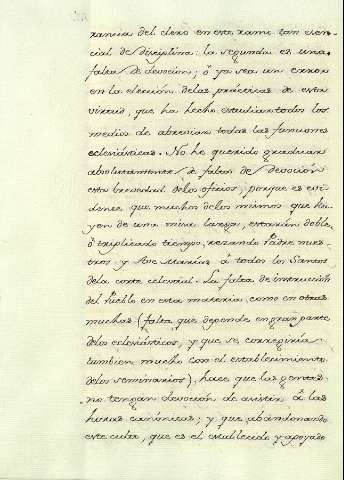 rancia del clero en este ramo tan esen-
cial de disciplina: la segunda es una
falta de devocion; ô ya sea un error
en la eleccion delas prácticas de esta
virtud, que ha hecho estudiar todos los
medios de abreviar todas las funciones
eclesiásticas. No he querido graduar
absolutamente de falta de devoción
esta brevedad delos oficios; porque es evi-
dente que muchos delos mismos que hu-
yen de una misa larga, estarán doble,
ô triplicado tiempo, rezando Padre nues-
tros y Ave Marias â todos los Santos
dela corte celestial. La falta de instrucción
del Pueblo en esta materia, como en otras
muchas (falta que depende en gran parte
delos eclesiásticos, y que se corregiria
tambien mucho con el establecimiento
delos seminarios), hace que las gentes
no tengan devocion de asistir â las
horas canónicas; y que abandonando
este culto, que es el establecido y apoyado